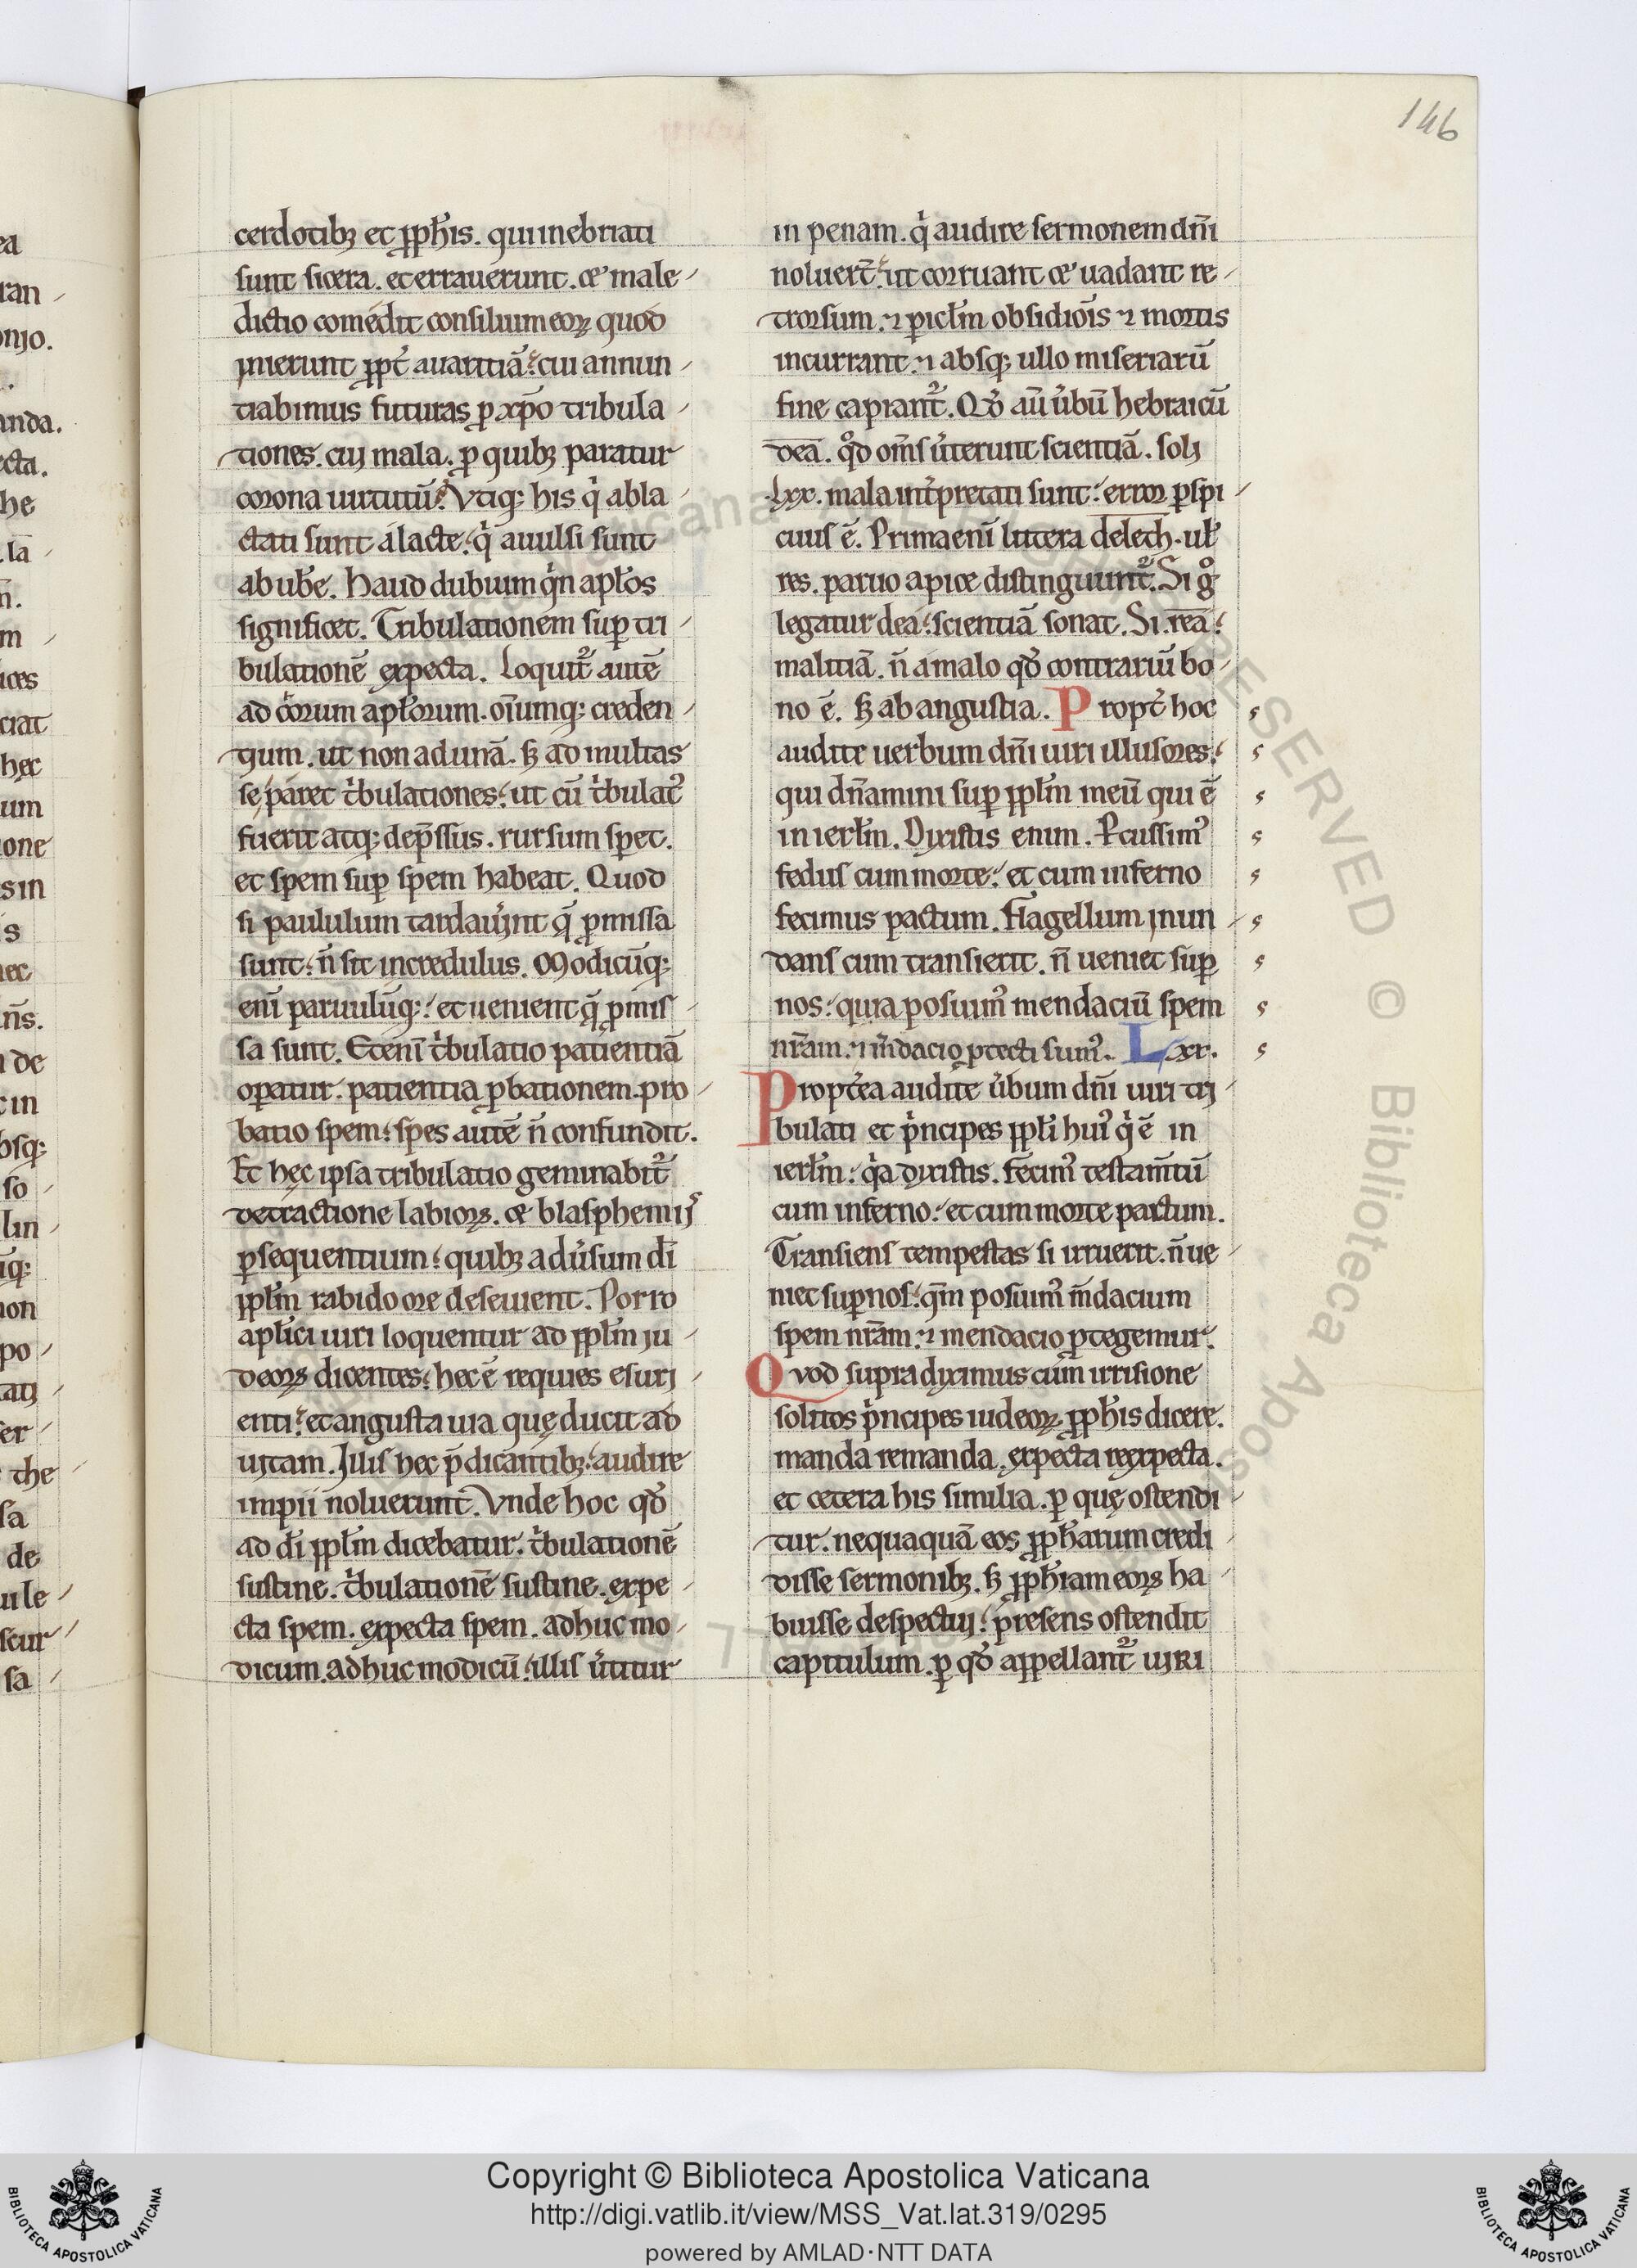 146
cerdotibꝫ et ꝓph̄is. qui inebriati
sunt sicera. et errauerunt. ⁊ male-
dictio comedit consilium eoꝝ quod
inierunt ꝓpt̄ auaritiā. cui annun-
tiabimus futuras ꝑ xp̄o tribula-
tiones. cui mala. ꝑ quibꝫ paratur
corona uirtutū. Vtiqꝫ his qi abla-
ctati sunt a lacte. qi auulsi sunt
ab ub̄e. haud dubium qin aplos
significet. Tribulationem suꝑ tri-
bulationē expecta. Loquit᷑ autē
ad coꝛum aplorum. oīumqꝫ creden-
tium. ut non ad unā. sꝫ ad multas
se paret tͥbulationes. ut cū tͥbulat᷑
fuerit atqꝫ dep̄ssus. rursum speret.
et spem suꝑ spem habeat. Quod
si paululum tardauerint q̄ ꝓmissa
sunt. n̄ sit incredulus. Modicūqꝫ
enī paruulūqꝫ. et uenient q̄ ꝓmis-
sa sunt. Etenī tͥbulatio patientiā
oꝑatur. patientia ꝓbationem. pro-
batio spem. spes autē n̄ confundit.
Et hęc ipsa tribulatio geminabit᷑
detractione labioꝝ. ⁊ blasphemijs
ꝑsequentium. quibꝫ aduͥsum dī
ppl̄m rabido ore deseuient. Porro
apl̄ici uiri loquentur ad ppl̄m iu-
deoꝝ dicentes. hec ē requies esuri-
enti. et angusta uia quę ducit ad
uitam. Illis hec p̄dicantibꝫ. audire
impii noluerunt. Vnde hoc qd̄
ad dī ppl̄m dicebatur. tͥbulationē
sustine. tͥbulationē sustine. expe-
cta spem. expecta spem. adhuc mo-
dicum. adhuc modicū. illis uͥtitur
in penam. qi audire sermonem dn̄i
noluert̄. ut corruant ⁊ uadant re-
trorsum. ⁊ ꝑicl̄m obsidiōis ⁊ mortis
incurrant. ⁊ absqꝫ ullo miseriarū
fine capiant᷑. Qd̄ aū uͥbū hebraicū
dea. qd̄ om̄s uͥterunt scientiā. soli
.lxx. mala intͥpretati sunt. error ꝑspi-
cuus ē. Prima enī littera delech. ul̄
res. paruo apice distinguunt᷑. Si gͦ
legatur dea. scientiā sonat. Si rea.
malitiā. n̄ a malo qd̄ contrariū bo-
no ē. sꝫ ab angustia. Propt̄ hoc
audite uerbum dn̄i uiri illusores.
qui dn̄amini suꝑ ppl̄m meū qui ē
in ierl̄m. Dixistis enim. Ꝑcussim᷒
fedus cum morte. et cum inferno
fecimus pactum. Flagellum inun-
dans cum transierit. n̄ ueniet suꝑ
nos. quia posuim᷒ mendaciū spem
nr̄am. ⁊ m̄dacio ꝓtecti sum᷒. Lxx.
Propt̄ea audite uͥbum dn̄i uiri tri-
bulati et pͥncipes ppl̄i hui᷒ qi ē in
ierl̄m. qia dixistis. fecim᷒ testam̄tū
cum inferno. et cum morte pactum.
Transiens tempestas si irruerit. n̄ ue-
niet suꝑ nos. qm̄ posuim᷒ m̄dacium
spem nr̄am. ⁊ mendacio ꝓtegemur.
Quod supra diximus cum irrisione
solitos pͥncipes iudeoꝝ ꝓph̄is dicere.
manda remanda. expecta reexpecta.
et cetera his similia. ꝑ quę ostendi-
tur. nequaquā eos ꝓph̄arum credi-
disse sermonibꝫ. sꝫ ꝓph̄iam eoꝝ ha-
buisse despectui. presens ostendit
capitulum. ꝑ qd̄ appellant᷑ uiri
Copyright © Biblioteca Apostolica Vaticana
http://digi.vatlib.it/view/MSS_Vat.lat.319/0295
powered by AMLAD·NTT DATA
BIBLIOTECA APOSTOLICA VATICANA
BIBLIOTECA APOSTOLICA VATICANA